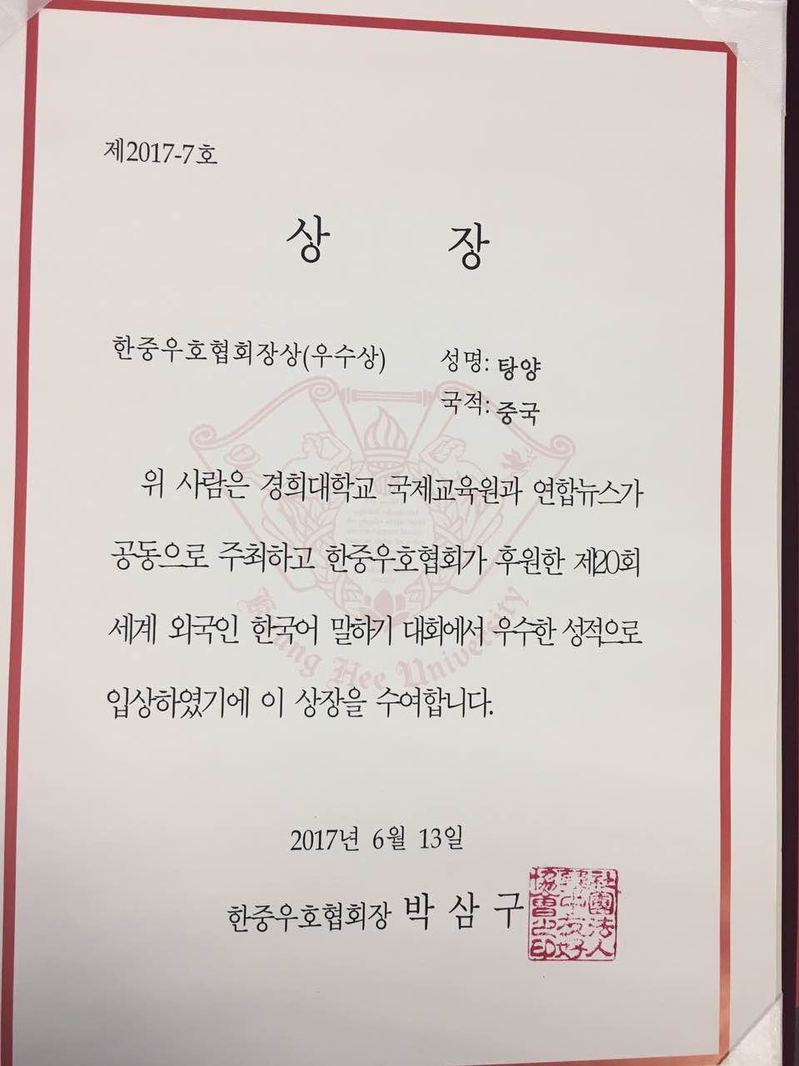 제2017-7호
상 장
한중우호협회장상(우수상) 성명: 탕양
국적: 중국
위 사람은 경희대학교 국제교육원과 연합뉴스가
공동으로 주최하고 한중우호협회가 후원한 제20회
세계 외국인 한국어 말하기 대회에서 우수한 성적으로
입상하였기에 이 상장을 수여합니다.
Kyung Hee University
2017년 6월 13일
한중우호협회장 박 삼 구
社團法人
韓中友好
協會之印